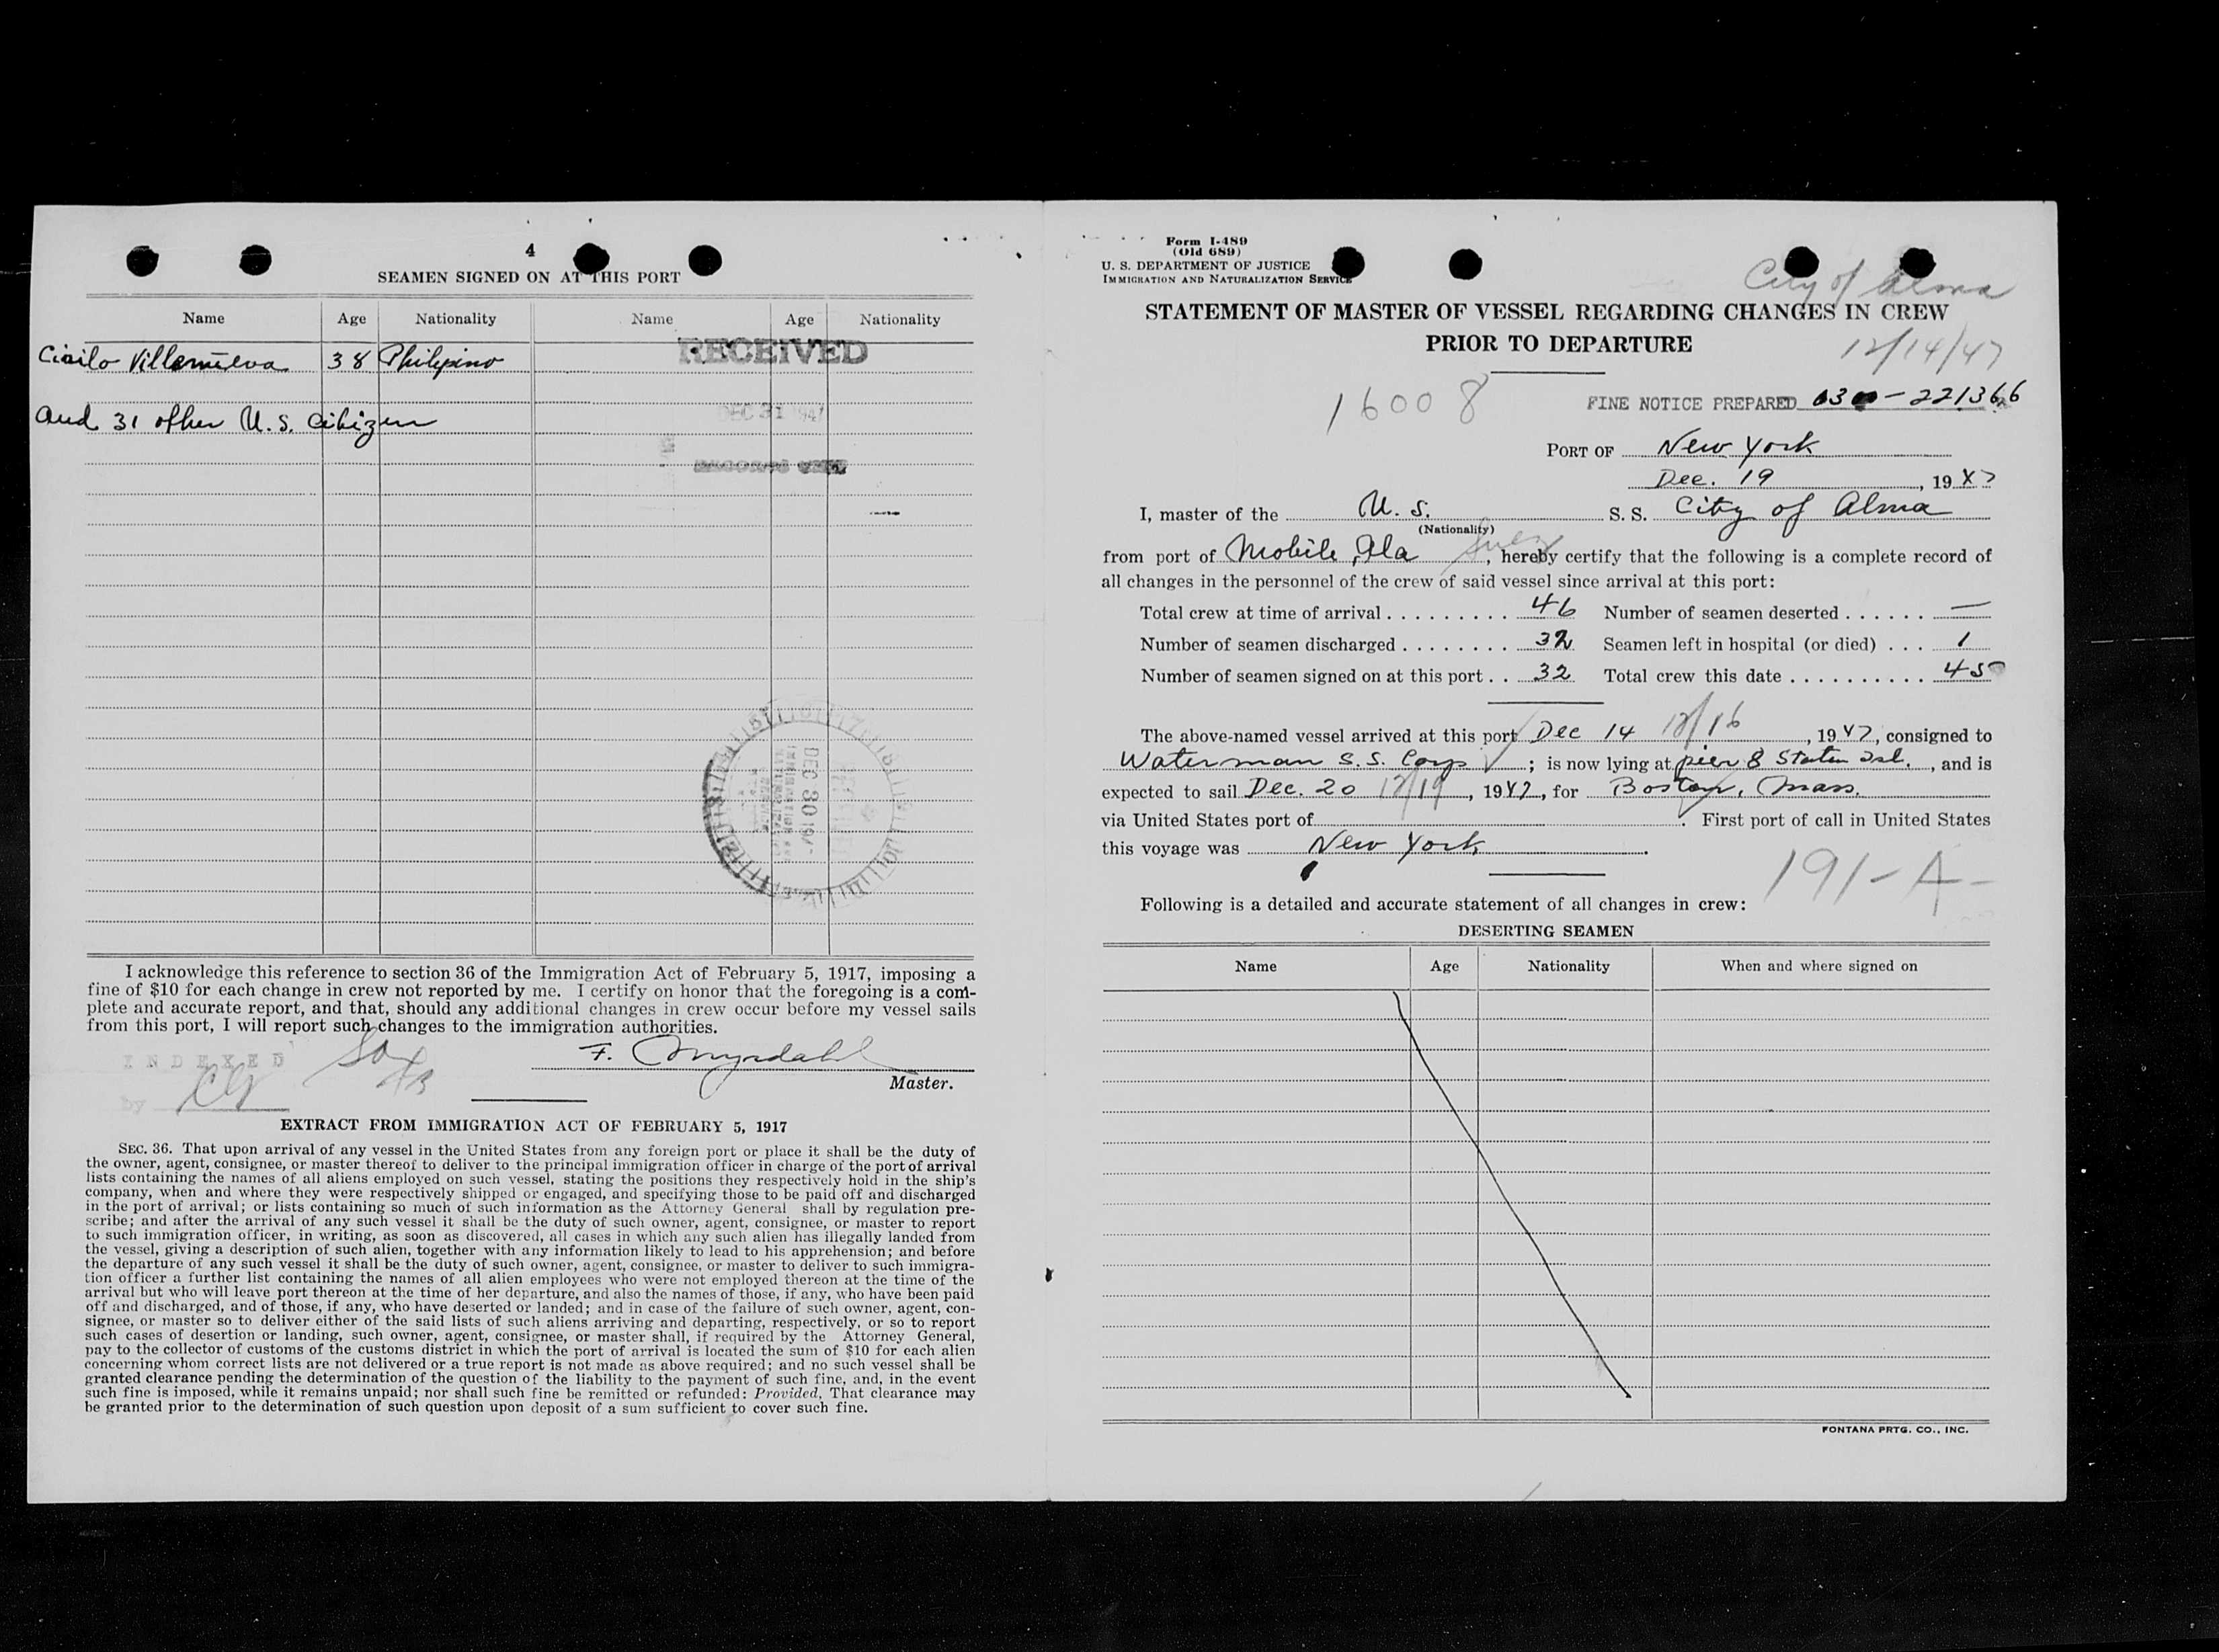 4
SEAMEN SIGNED ON AT THIS PORT
Name Age Nationality Name Age Nationality
RECEIVED
Villanueva 38 Philipino
DEC 31 1947
and 31 other U. S. Citizen
DEC 30 194
I acknowledge this reference to section 36 of the Immigration Act of February 5, 1917, imposing a
fine of $10 for each change in crew not reported by me. I certify on honor that the foregoing is a com-
plete and accurate report, and that, should any additional changes in crew occur before my vessel sails
from this port, I will report such changes to the immigration authorities.
INDEXED
F. Myrdahl
Master.
by
EXTRACT FROM IMMIGRATION ACT OF FEBRUARY 5, 1917
SEC. 36. That upon arrival of any vessel in the United States from any foreign port or place it shall be the duty of
the owner, agent, consignee, or master thereof to deliver to the principal immigration officer in charge of the port of arrival
lists containing the names of all aliens employed on such vessel, stating the positions they respectively hold in the ship's
company, when and where they were respectively shipped or engaged, and specifying those to be paid off and discharged
in the port of arrival; or lists containing so much of such information as the Attorney General shall by regulation pre-
scribe; and after the arrival of any such vessel it shall be the duty of such owner, agent, consignee, or master to report
to such immigration officer, in writing, as soon as discovered, all cases in which any such alien has illegally landed from
the vessel, giving a description of such alien, together with any information likely to lead to his apprehension; and before
the departure of any such vessel it shall be the duty of such owner, agent, consignee, or master to deliver to such immigra-
tion officer a further list containing the names of all alien employees who were not employed thereon at the time of the
arrival but who will leave port thereon at the time of her departure, and also the names of those, if any, who have been paid
off and discharged, and of those, if any, who have deserted or landed; and in case of the failure of such owner, agent, con-
signee, or master so to deliver either of the said lists of such aliens arriving and departing, respectively, or so to report
such cases of desertion or landing, such owner, agent, consignee, or master shall, if required by the Attorney General,
pay to the collector of customs of the customs district in which the port of arrival is located the sum of $10 for each alien
concerning whom correct lists are not delivered or a true report is not made as above required; and no such vessel shall be
granted clearance pending the determination of the question of the liability to the payment of such fine, and, in the event
such fine is imposed, while it remains unpaid; nor shall such fine be remitted or refunded: Provided, That clearance may
be granted prior to the determination of such question upon deposit of a sum sufficient to cover such fine.
Form I-489
(Old 689)
U. S. DEPARTMENT OF JUSTICE
IMMIGRATION AND NATURALIZATION SERVICE
City of Alma
STATEMENT OF MASTER OF VESSEL REGARDING CHANGES IN CREW
PRIOR TO DEPARTURE
12/14/47
16008
FINE NOTICE PREPARED 0300-221366
PORT OF New York
Dec. 19, 1947
I, master of the U. S. S. S. City of Alma
(Nationality)
from port of Mobile, Ala Suez, hereby certify that the following is a complete record of
all changes in the personnel of the crew of said vessel since arrival at this port:
Total crew at time of arrival 46 Number of seamen deserted —
Number of seamen discharged 32 Seamen left in hospital (or died) 1
Number of seamen signed on at this port 32 Total crew this date 45
The above-named vessel arrived at this port Dec 14 12/16, 1947, consigned to
Waterman S. S. Corp; is now lying at pier 8 Staten Isl., and is
expected to sail Dec. 20 12/19, 1947, for Boston, Mass.
via United States port of . First port of call in United States
this voyage was New York.
191-A-
Following is a detailed and accurate statement of all changes in crew:
DESERTING SEAMEN
Name Age Nationality When and where signed on
FONTANA PRTG. CO., INC.